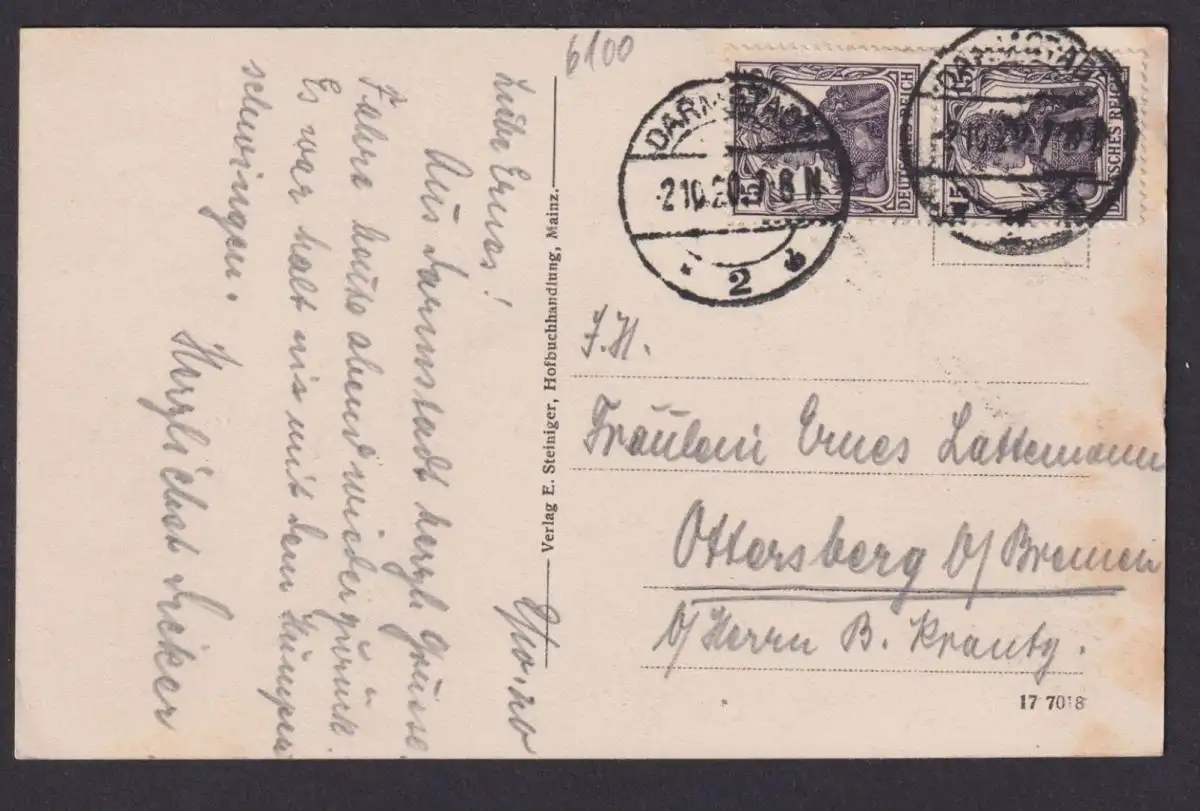 6100
DEUTSCHES REICH
DEUTSCHES REICH
15
15
DARMSTADT
-2.10.20. 7-8 N
2 b
DARMSTADT
-2.10.20. 7-8 N
9/10.20
Liebe Ernes!
Aus Darmstadt herzl. Grüsse.
Fahre heute abend wieder zurück.
Es war halt nix mit dem
schwingen.
Herzlichst
Verlag E. Steiniger, Hofbuchhandlung, Mainz.
J. H.
Fräulein Ernes Lattemann
Ottersberg b/ Bremen
b/ Herrn B. Krantz.
17 7018